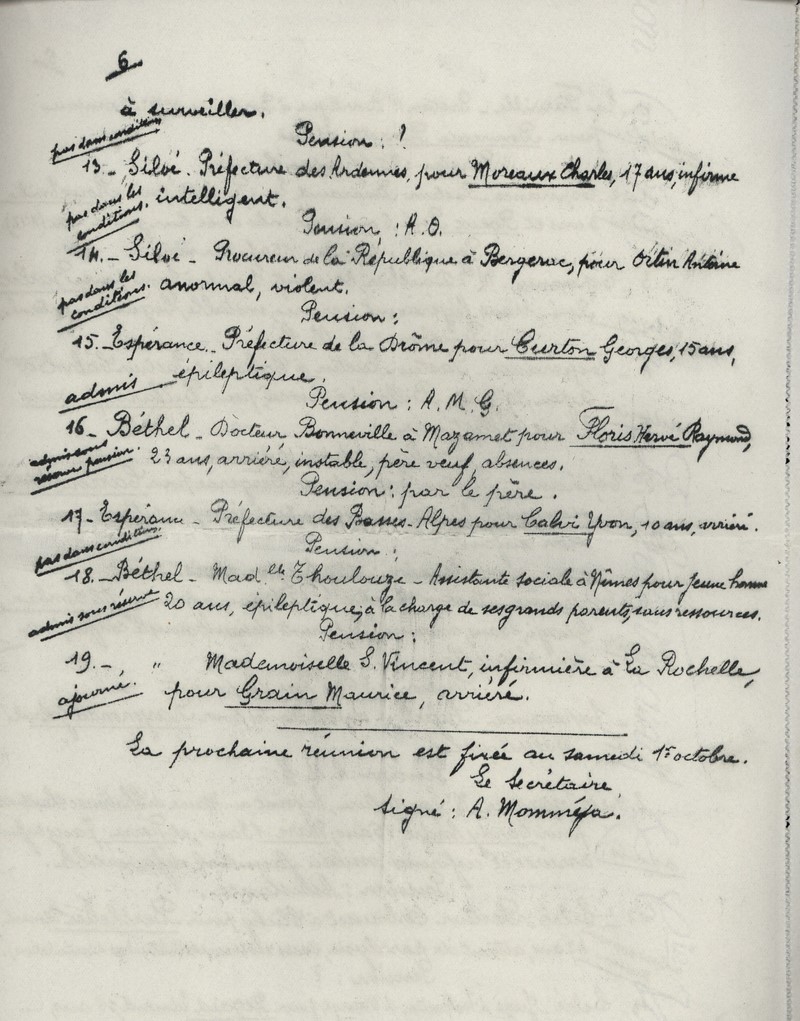 6
à surveiller.
Pension : ?
pas dans conditions
13.- Siloé. Préfecture des Ardennes, pour Moreaux Charles, 17 ans, infirme
intelligent.
pas dans les
conditions.
Pension : A.O.
14.- Siloé - Procureur de la République à Bergerac, pour Antoine
anormal, violent.
pas dans les
conditions.
Pension :
15.- Espérance - Préfecture de la Drôme pour Curton Georges, 15 ans,
épileptique.
admis
Pension : A. M. G.
16.- Béthel - Docteur Bonneville à Mazamet pour Floris Hervé Raymond,
23 ans, arriéré, instable, père veuf, absences.
admis sous
réserve pension.
Pension : par le père.
17.- Espérance - Préfecture des Basses-Alpes pour Calvi Yvon, 10 ans, arriéré.
pas dans conditions
Pension :
18.- Béthel - Mad.lle Thoulouze - Assistante sociale à Nîmes pour jeune homme
20 ans, épileptique, à la charge de ses grands parents, sans ressources.
admis sous réserve
Pension :
19.- " Mademoiselle S. Vincent, infirmière à La Rochelle,
pour Grain Maurice, arriéré.
ajourné.
La prochaine réunion est fixée au samedi 1er octobre.
Le Secrétaire
Signé : A. Momméja.